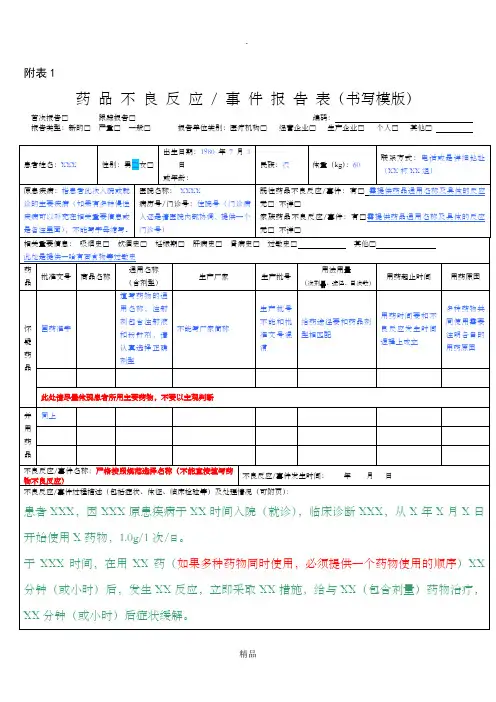 附表1
药 品 不 良 反 应 / 事 件 报 告 表（书写模版）
首次报告□ 跟踪报告□ 编码：
报告类型：新的□ 严重□ 一般□ 报告单位类别：医疗机构□ 经营企业□ 生产企业□ 个人□ 其他□
患者姓名：XXX
性别：男 女□
出生日期：1980 年 7 月
日
或年龄：
民族：汉
体重（kg）：60
联系方式：电话或是详细地址
原患疾病：指患者此次入院或就
诊的主要疾病（如果有多种慢性
疾病可以补充在相关重要信息或
是备注里面），不能写字母缩写。
医院名称： XXXX
病历号/门诊号：住院号（门诊病
人还是请医院内部协调，提供一个
门诊号）
既往药品不良反应/事件：有□ 需提供药品通用名称及具体的反应
无□ 不详□
家族药品不良反应/事件：有□需提供药品通用名称及具体的反应
无□ 不详□
相关重要信息： 吸烟史□ 饮酒史□ 妊娠期□ 肝病史□ 肾病史□ 过敏史□ 其他□
此处是提供一些有否食物等过敏史
药
品
批准文号
商品名称
通用名称
（含剂型）
生产厂家
生产批号
用法用量
（次剂量、途径、日次数）
用药起止时间
用药原因
怀
疑
药
品
国药准字
填写药物的通
用名称，注射
剂包含注射液
和粉针剂，请
认真选择正确
剂型
不能写厂家简称
生产批号
不能和批
准文号混
淆
给药途径要和药品剂
型相匹配
用药时间要和不
良反应发生时间
逻辑上成立
多种药物共
同使用需要
注明各自的
用药原因
此处请尽量体现患者所用主要药物，不要以主观判断
并
用
药
品
同上
不良反应/事件名称：严格按照规范选择名称（不能直接填写药
物不良反应）
不良反应/事件发生时间： 年 月 日
不良反应/事件过程描述（包括症状、体征、临床检验等）及处理情况（可附页）：
患者 XXX，因 XXX 原患疾病于 XX 时间入院（就诊），临床诊断 XXX，从 X 年 X 月 X 日
开始使用 X 药物，1.0g/1 次/日。
于 XXX 时间，在用 XX 药（如果多种药物同时使用，必须提供一个药物使用的顺序）XX
分钟（或小时）后，发生 XX 反应，立即采取 XX 措施，给与 XX（包含剂量）药物治疗，
XX 分钟（或小时）后症状缓解。
精品